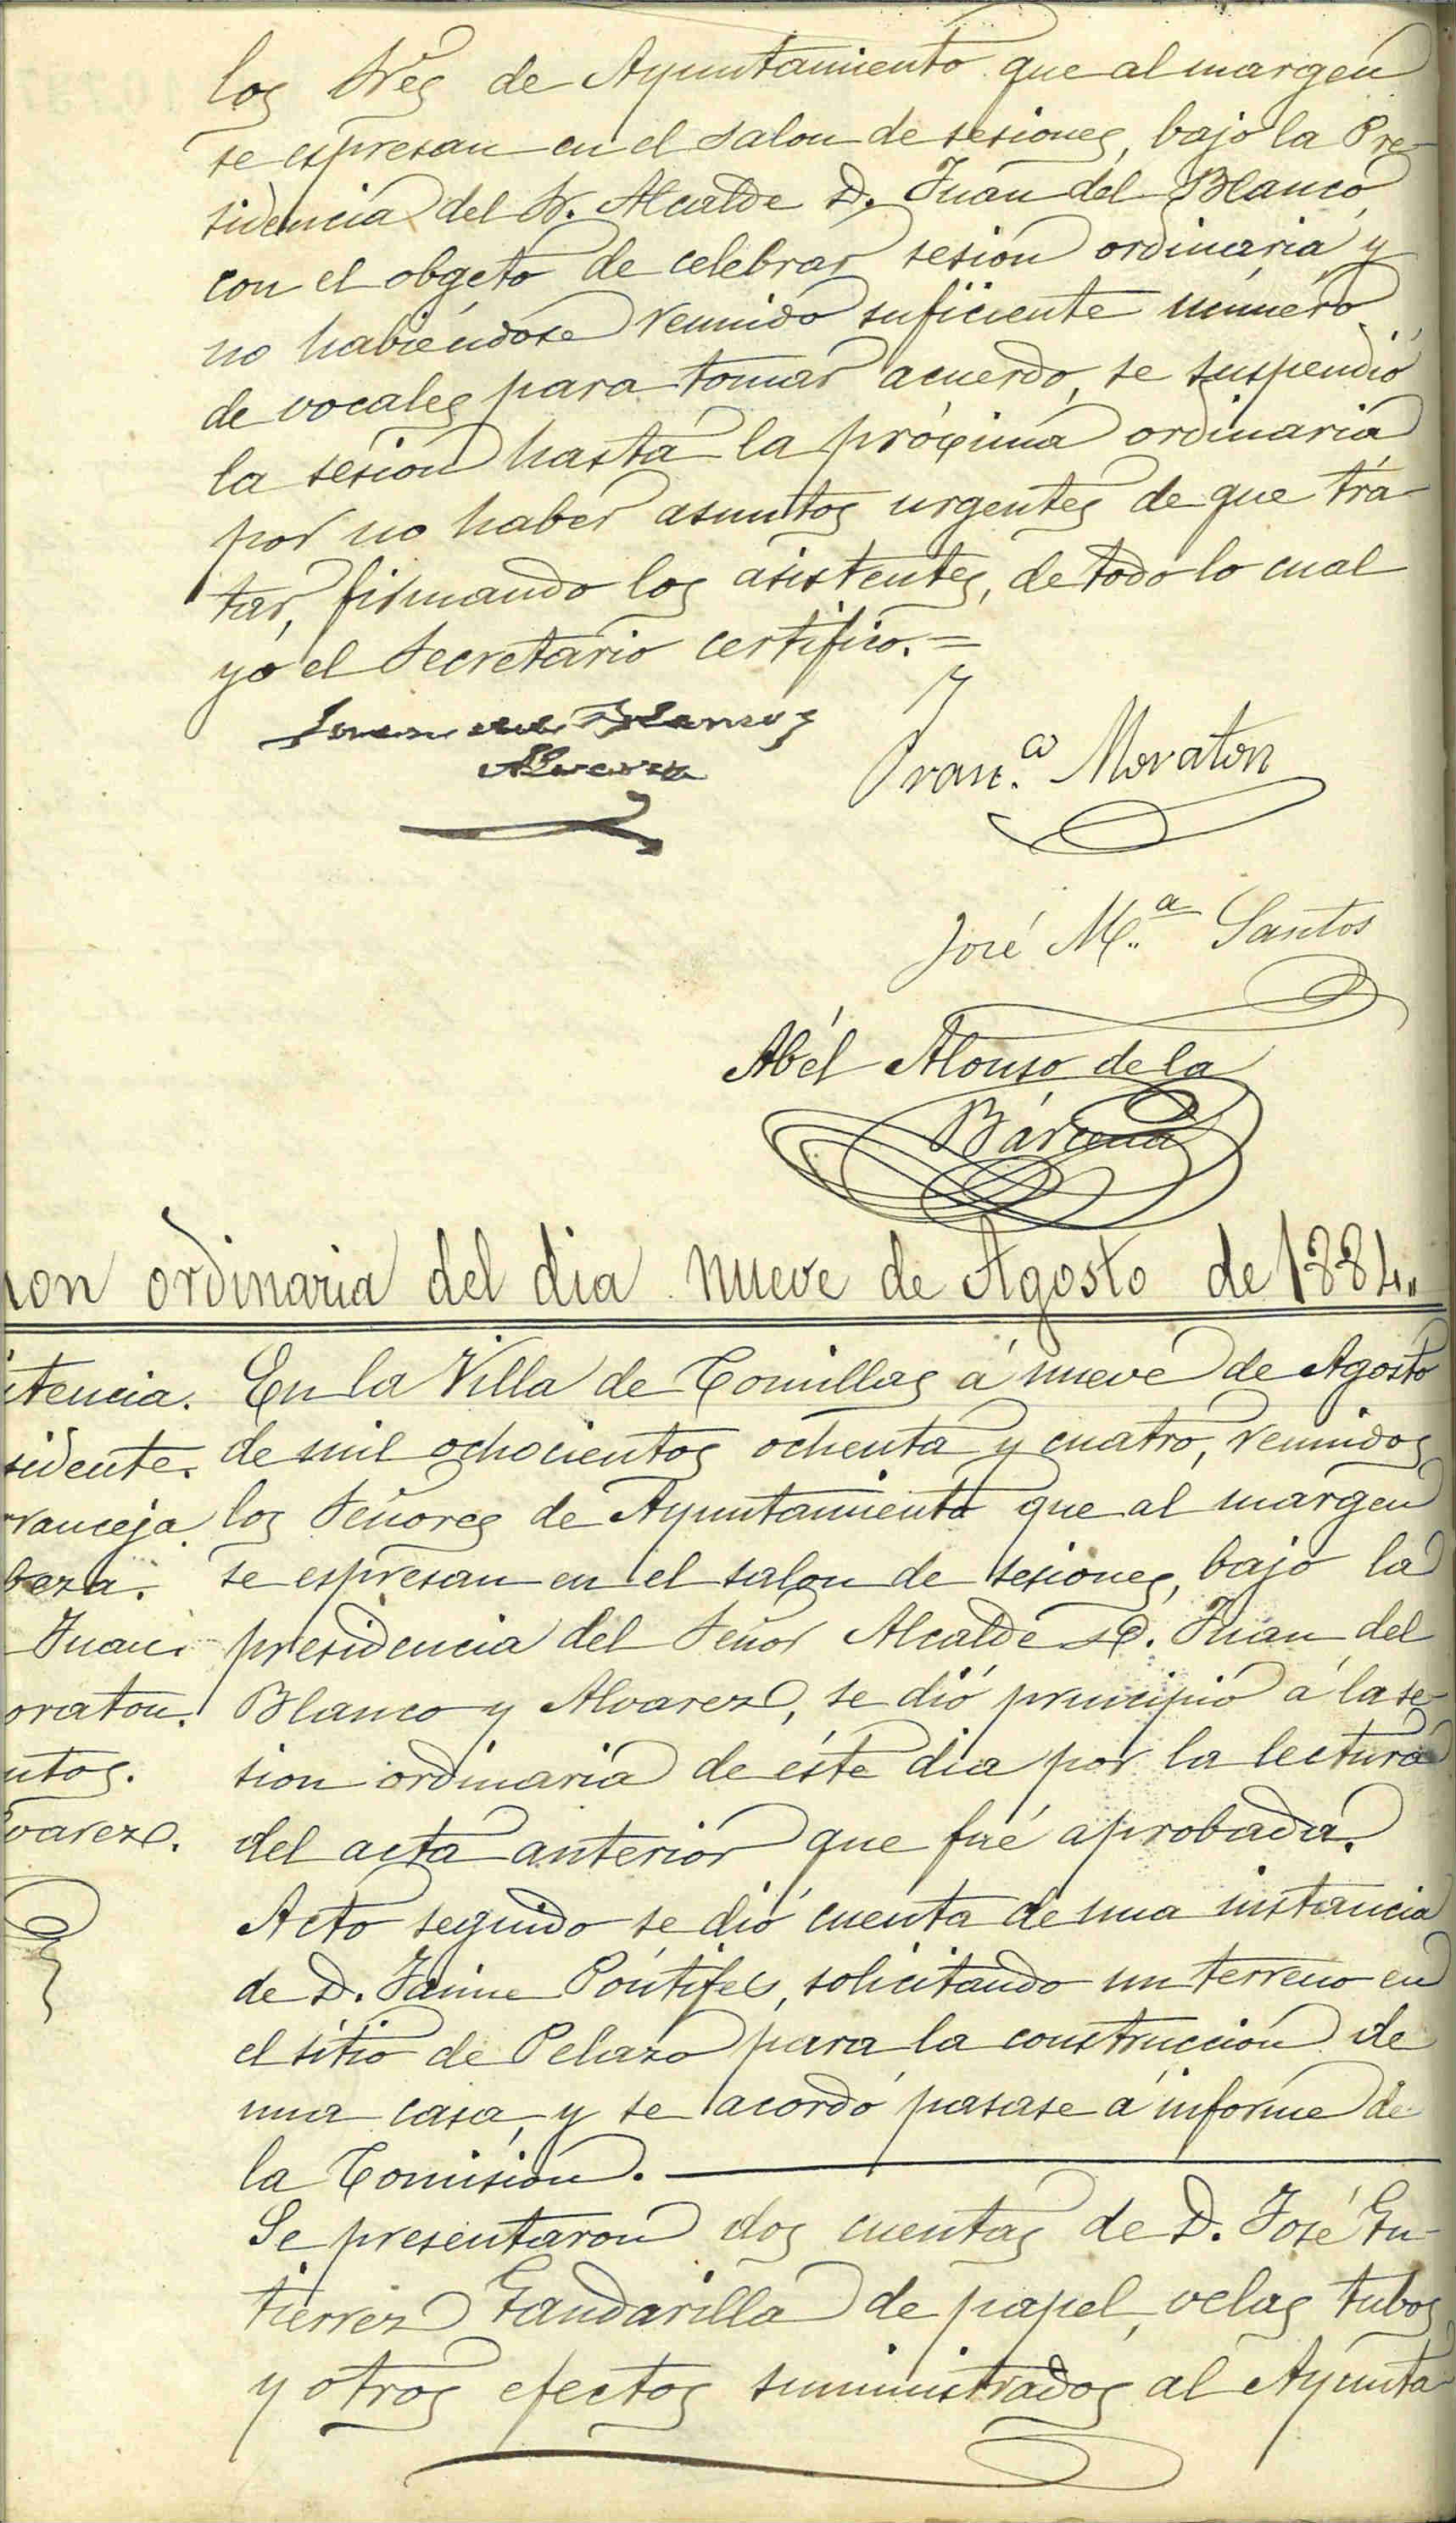 los Sres de Ayuntamiento que al margen
se espresan en el salon de sesiones, bajo la Pre-
sidencia del Sr. Alcalde D. Juan del Blanco,
con el obgeto de celebrar sesion ordinaria y
no habiéndose reunido suficiente número
de vocales para tomar acuerdo, se suspendió
la sesion hasta la próxima ordinaria
por no haber asuntos urgentes de que tra-
tar, firmando los asistentes, de todo lo cual
yo el Secretario certifico. =
Juan del Blanco y
Alvarez
Fran.co Moraton
José M.a Santos
Abél Alonso de la
Bárcena
ion ordinaria del dia nueve de Agosto de 1884.
itencia.
sidente.
ranceja
beza.
Juan
oraton.
ntos.
varez.
En la Villa de Comillas á nueve de Agosto
de mil ochocientos ochenta y cuatro, reunidos
los Señores de Ayuntamiento que al margen
se espresan en el salon de sesiones, bajo la
presidencia del Señor Alcalde D. Juan del
Blanco y Alvarez, se dió principio á la se-
sion ordinaria de éste dia por la lectura
del acta anterior que fué aprobada.
Acto seguido se dió cuenta de una instancia
de D. Jaime Póntifes, solicitando un terreno en
el sitio de Pelazo para la construccion de
una casa, y se acordó pasase á informe de
la Comision.
Se presentaron dos cuentas de D. José Gu-
tierrez Gandarilla de papel, velas tubos
y otros efectos suministrados al Ayunta-